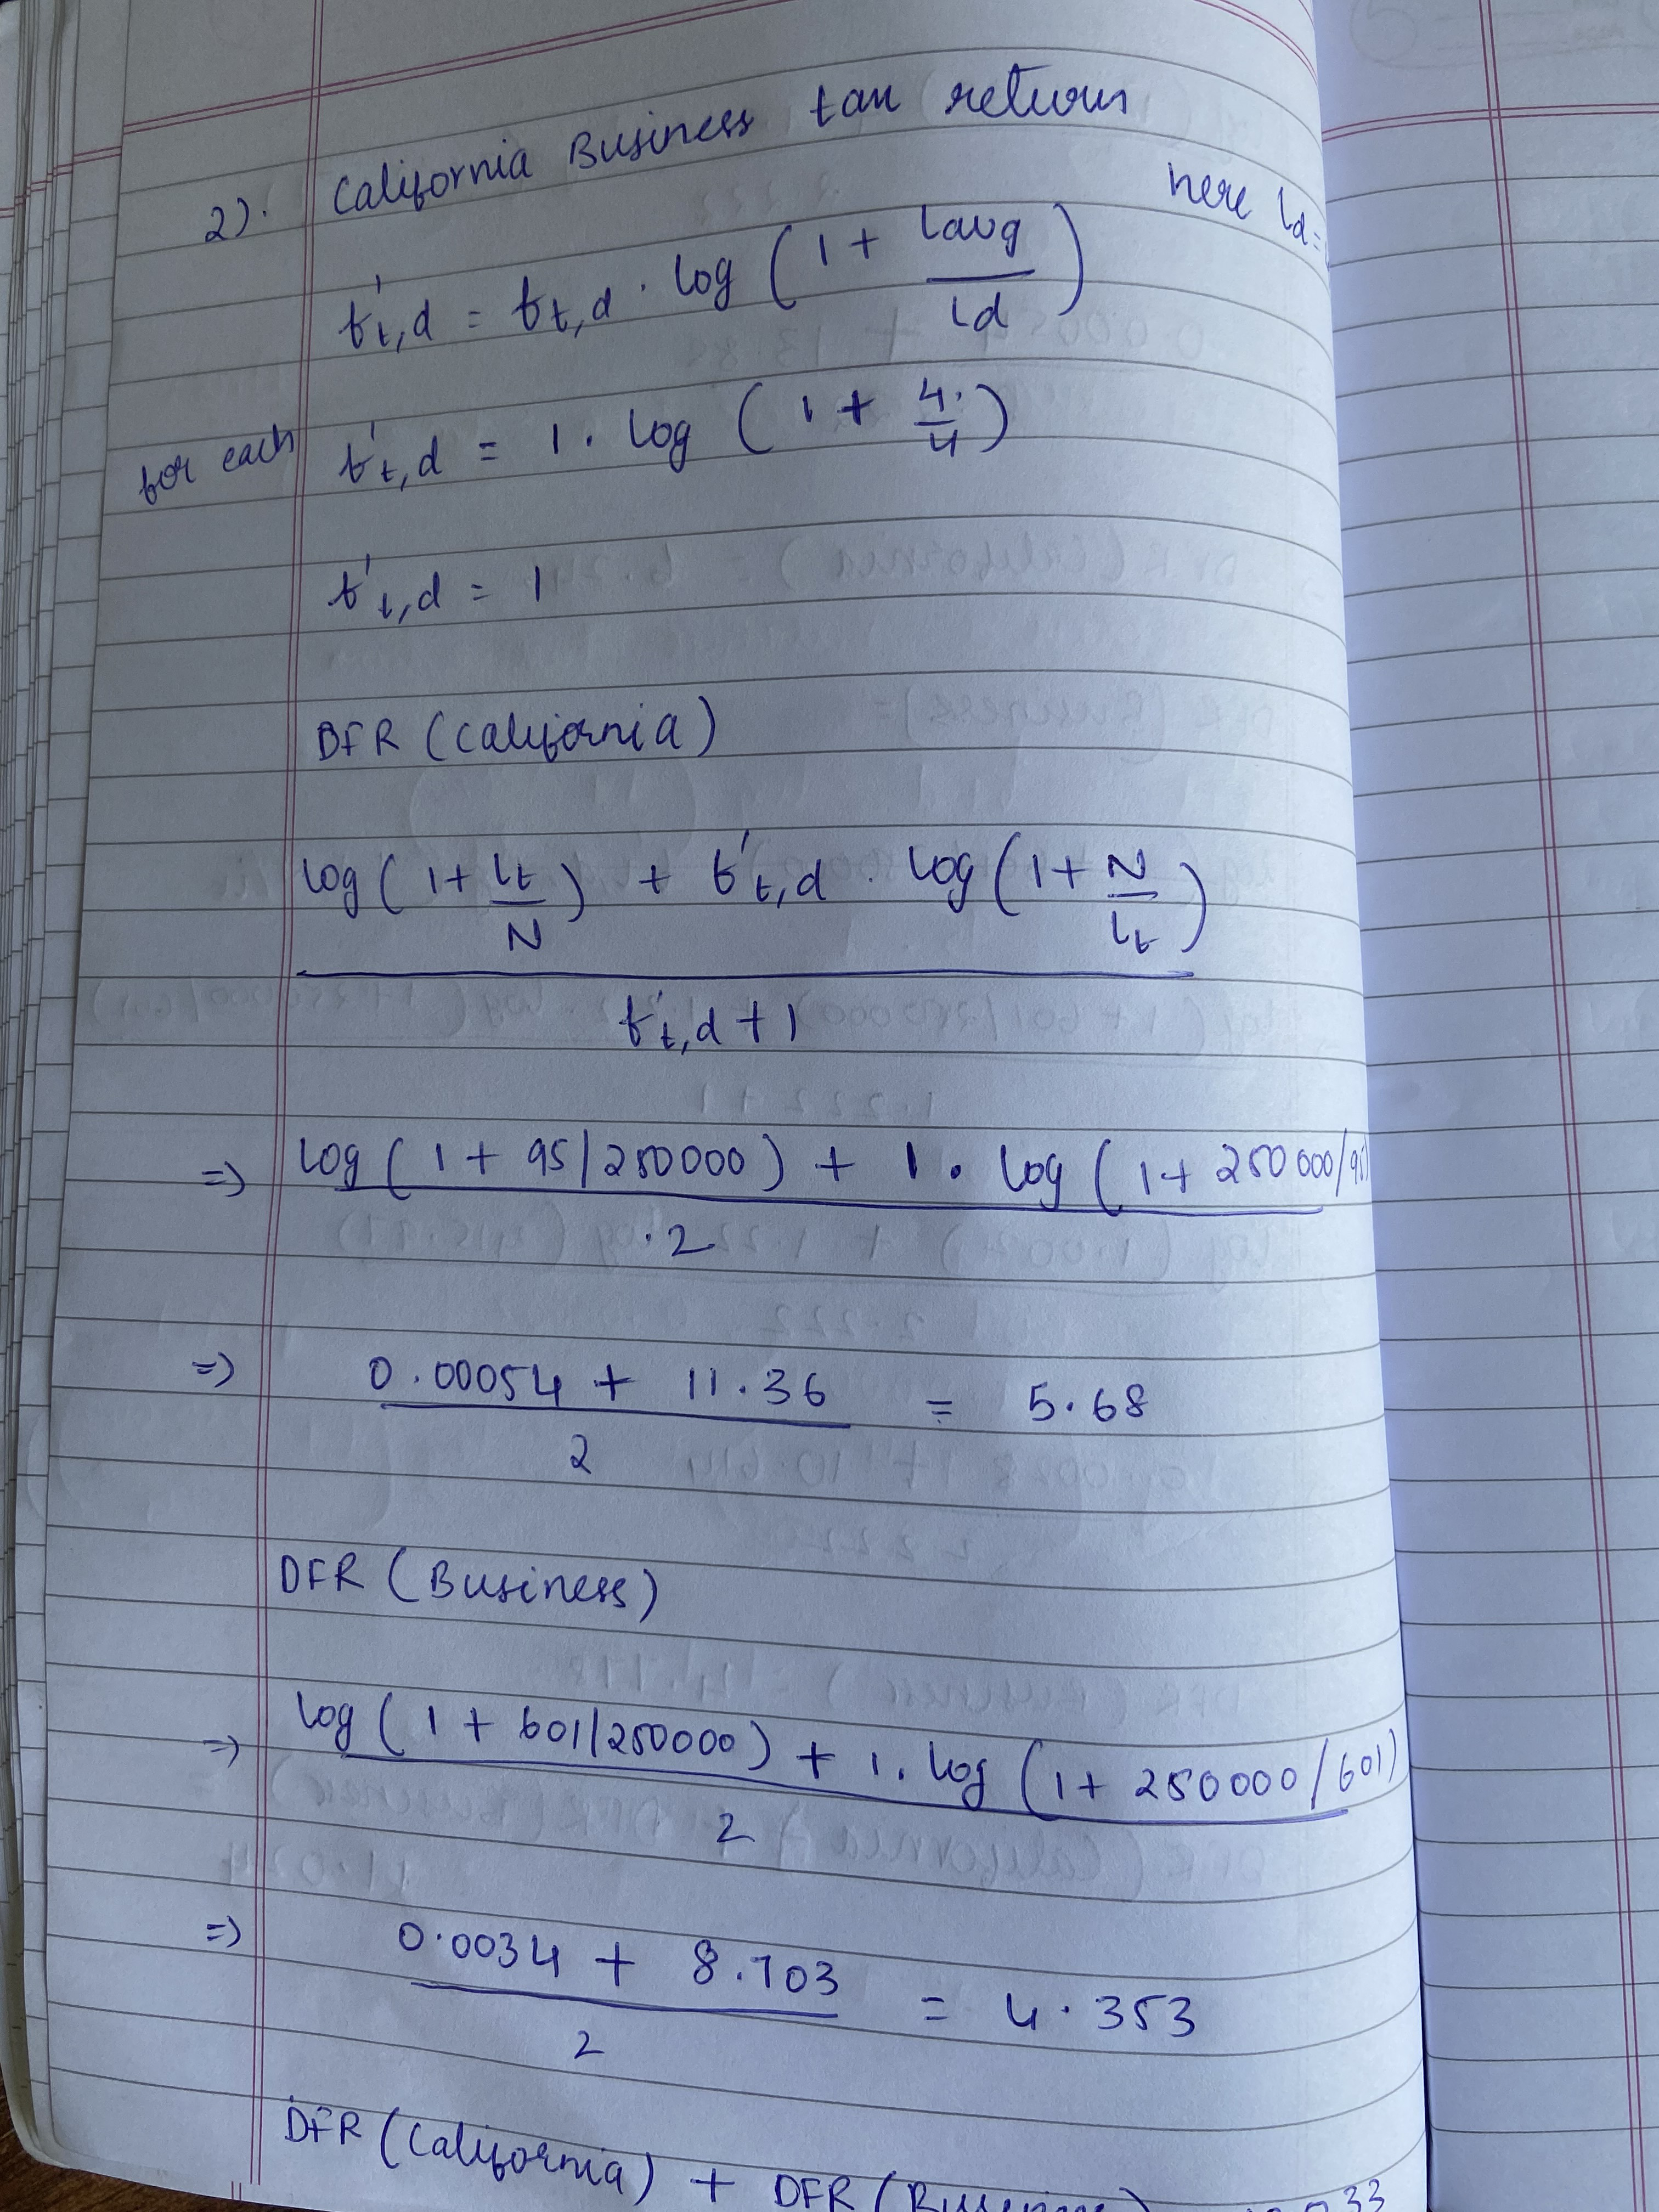 2). California Business tax return
here ld =
f't,d = ft,d . log ( 1 + lavg / ld )
for each f't,d = 1 . log ( 1 + 4 / 4 )
f't,d = 1
DFR (California)
log ( 1 + lt / N ) + f't,d . log ( 1 + N / lt )
f't,d + 1
=> log ( 1 + 95/250000 ) + 1 . log ( 1 + 250000/95
2
=> 0.00054 + 11.36 = 5.68
2
DFR (Business)
=> log ( 1 + 601/250000 ) + 1 . log ( 1 + 250000/601 )
2
=> 0.0034 + 8.703 = 4.353
2
DFR (California) + DFR (Business)